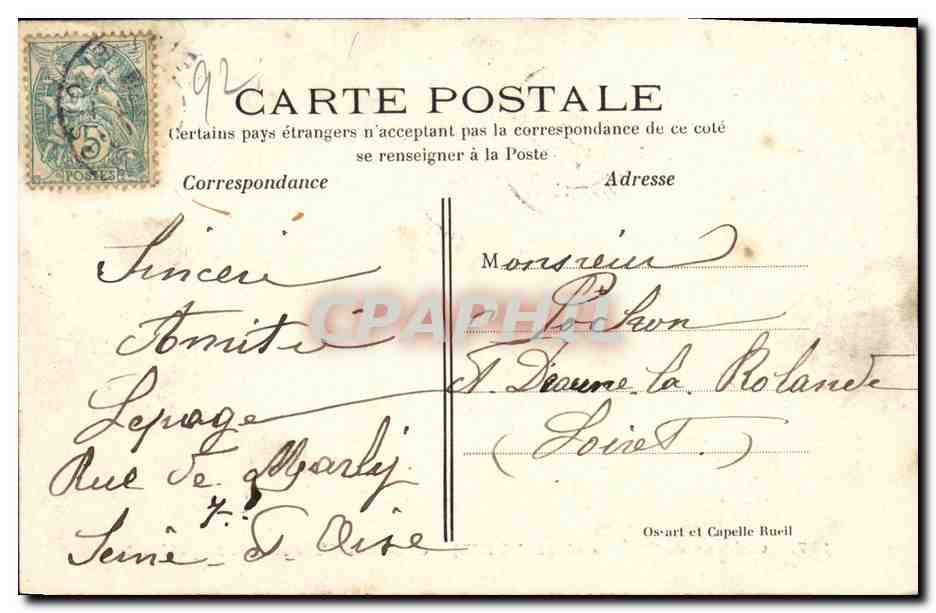 92
CARTE POSTALE
Certains pays étrangers n'acceptant pas la correspondance de ce coté
se renseigner à la Poste
Correspondance
Adresse
5
POSTES
Sincère
Amitié
Lepage
Rue de Marly
7
Seine et Oise
Monsieur
Pochon
à Beaune la Rolande
(Loiret)
CPAPHIL
Ossart et Capelle Rueil